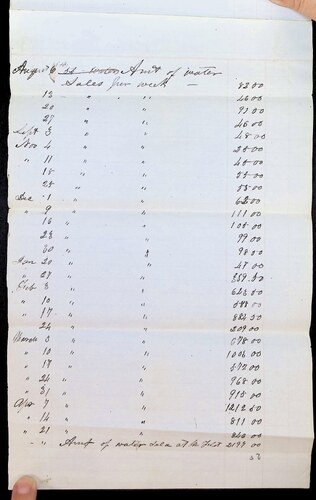 August 6th Amt of water
Sales per week — 82 00
13 " " " 46 00
20 " " " 93 00
27 " " " 46 00
Sept 3 " " " 48 00
Nov 4 " " " 25 00
" 11 " " 45 00
18 " " 55 00
25 " " 55 00
Dec 1 " " 62 00
" 9 " " 111 00
16 " " 105 00
23 " " 99 00
30 " " 98 00
Jan 20 " " 47 00
" 27 " " 359 50
Feb 3 " " 623 50
" 10 " "
" 17 " " 824 50
24 " " 209 00
March 3 " " 678 00
" 10 " " 1004 00
" 17 " " 572 00
" 24 " " 768 00
" 31 " " 915 00
Apr 7 " " 1212 50
" 14 " " 811 00
" 21 " "
" " Amt of water Sales at the First 2199 00